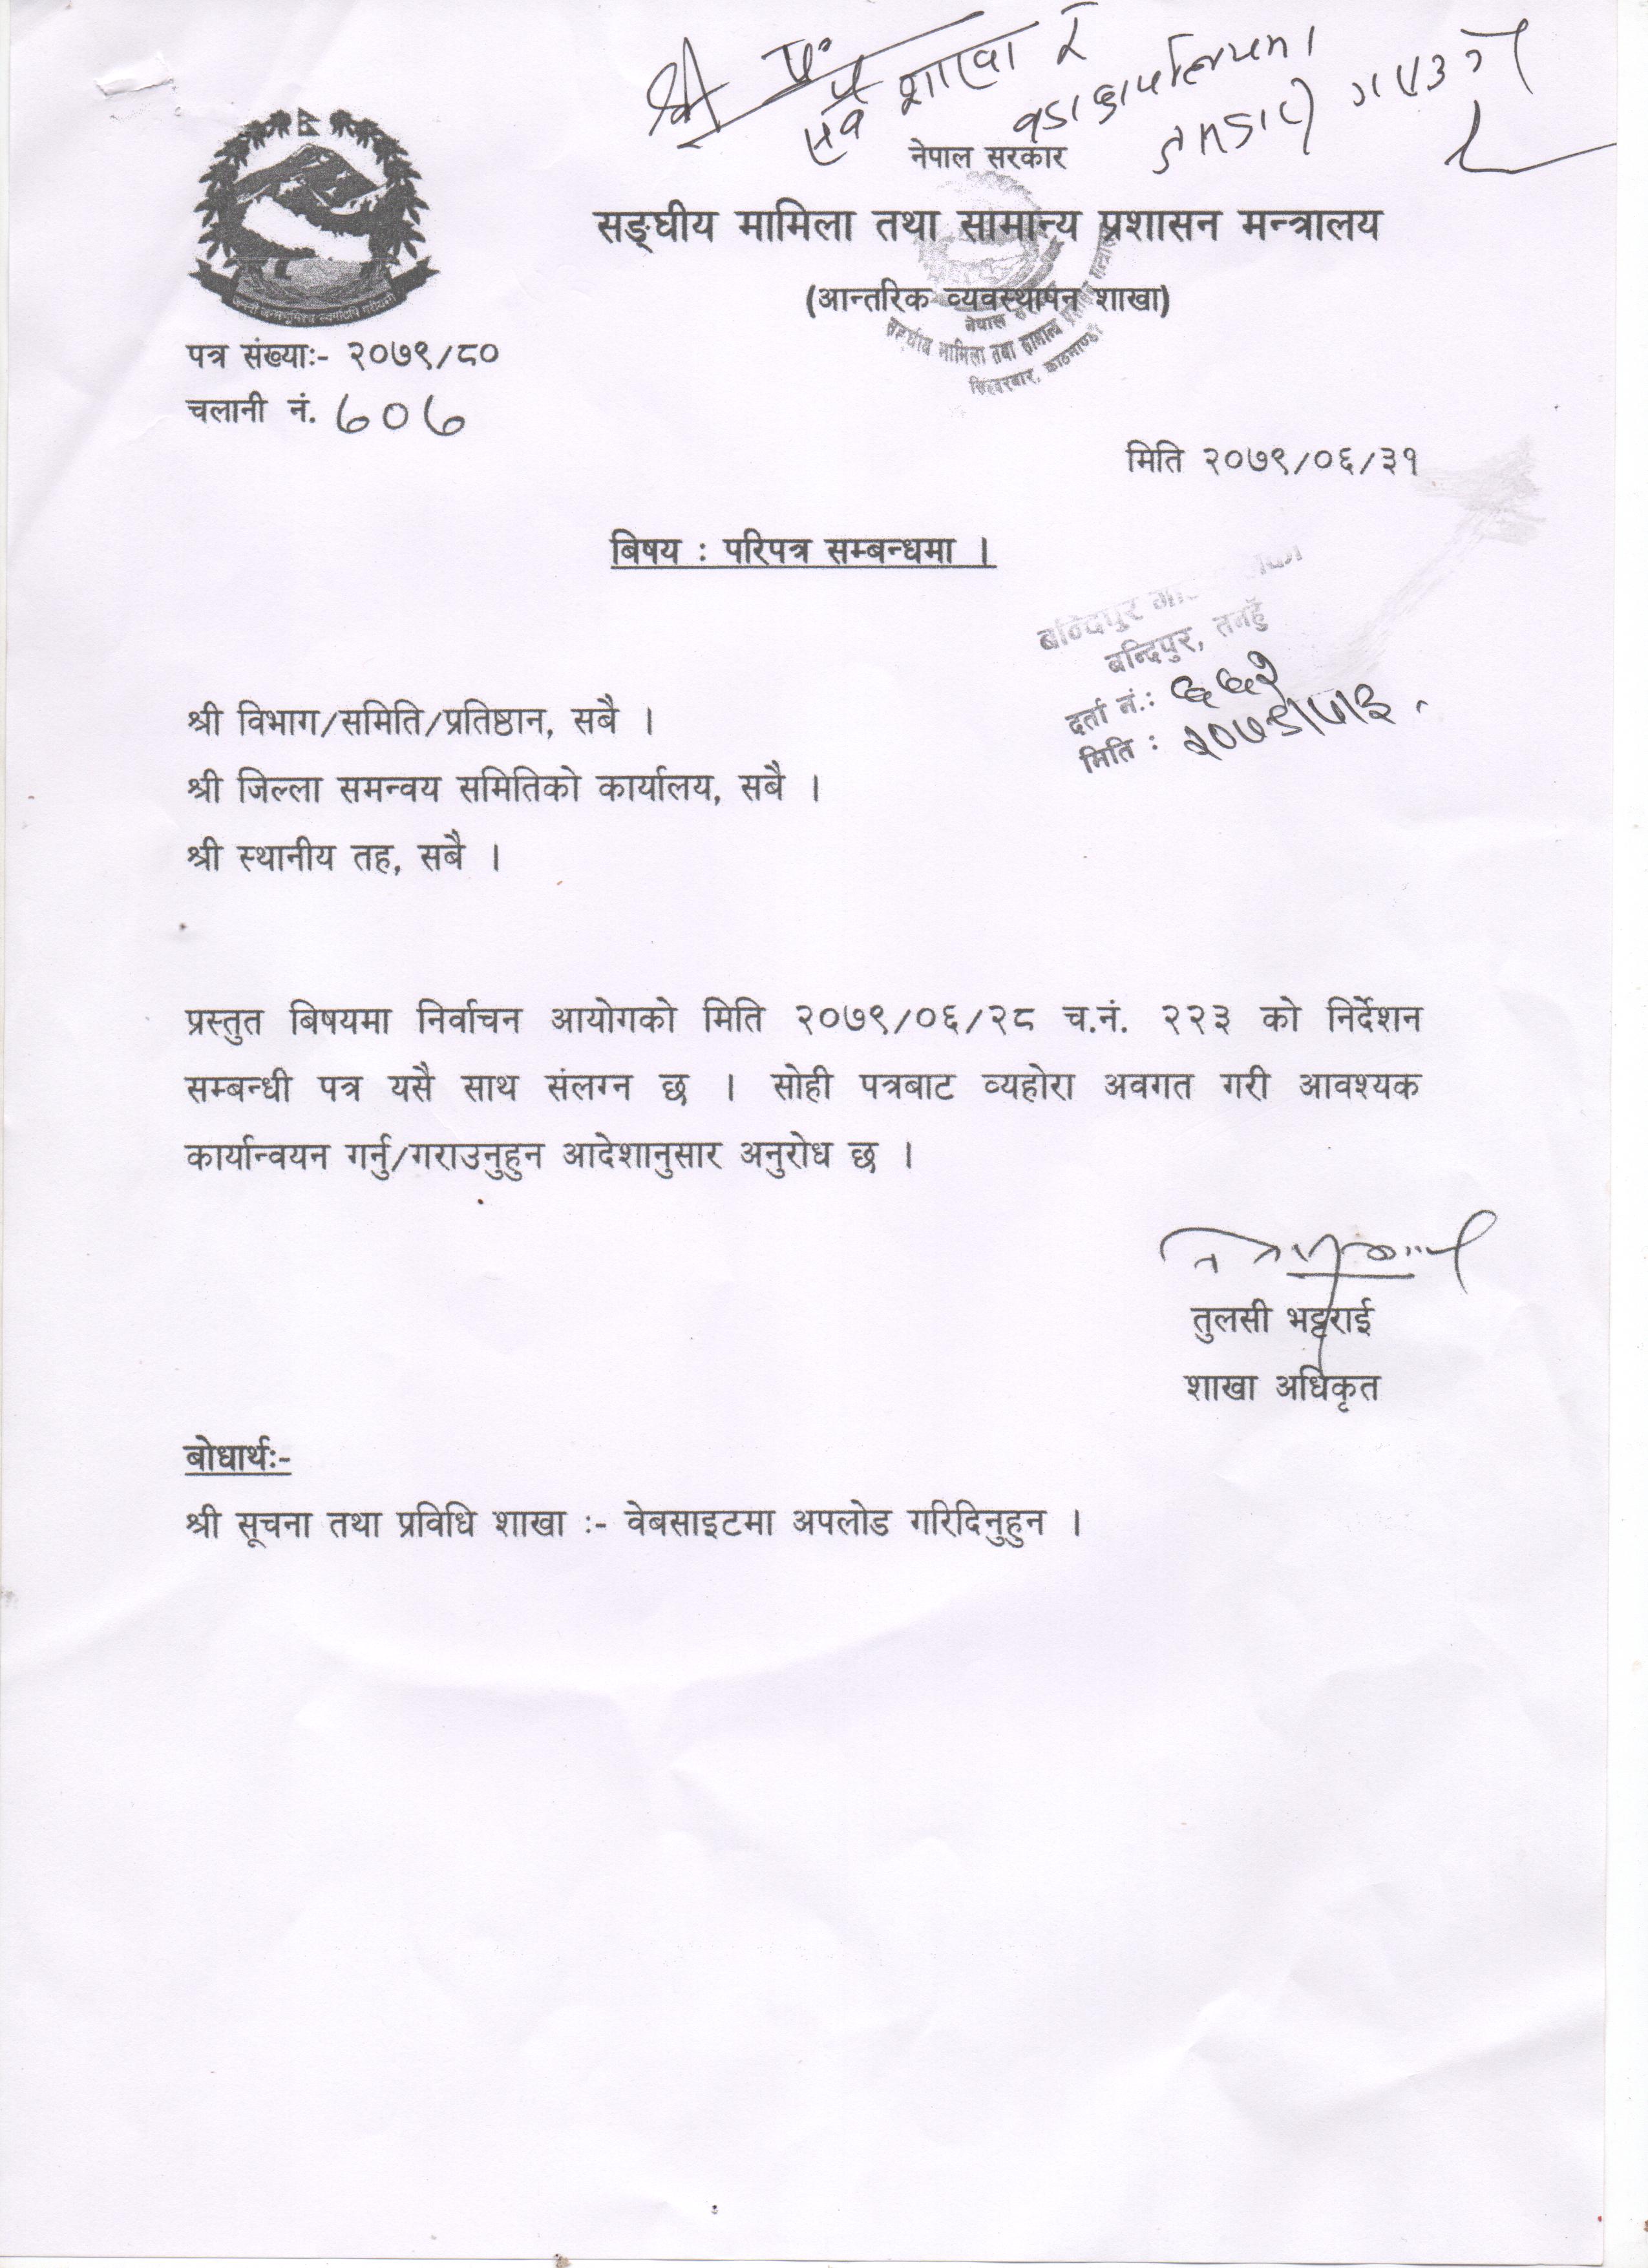 शाखा र
वडा कार्यालयमा
नेपाल सरकार
सङ्घीय मामिला तथा सामान्य प्रशासन मन्त्रालय
(आन्तरिक व्यवस्थापन शाखा)
नेपाल
सङ्घीय मामिला तथा सामान्य
सिंहदरबार, काठमाण्डौ
पत्र संख्याः- २०७९/८०
चलानी नं. ७०७
मिति २०७९/०६/३१
बिषय : परिपत्र सम्बन्धमा ।
बन्दिपुर
बन्दिपुर, तनहुँ
दर्ता नं.:
मिति :
श्री विभाग/समिति/प्रतिष्ठान, सबै ।
श्री जिल्ला समन्वय समितिको कार्यालय, सबै ।
श्री स्थानीय तह, सबै ।
प्रस्तुत बिषयमा निर्वाचन आयोगको मिति २०७९/०६/२८ च.नं. २२३ को निर्देशन
सम्बन्धी पत्र यसै साथ संलग्न छ । सोही पत्रबाट व्यहोरा अवगत गरी आवश्यक
कार्यान्वयन गर्नु/गराउनुहुन आदेशानुसार अनुरोध छ ।
तुलसी भट्टराई
शाखा अधिकृत
बोधार्थः-
श्री सूचना तथा प्रविधि शाखा :- वेबसाइटमा अपलोड गरिदिनुहुन ।